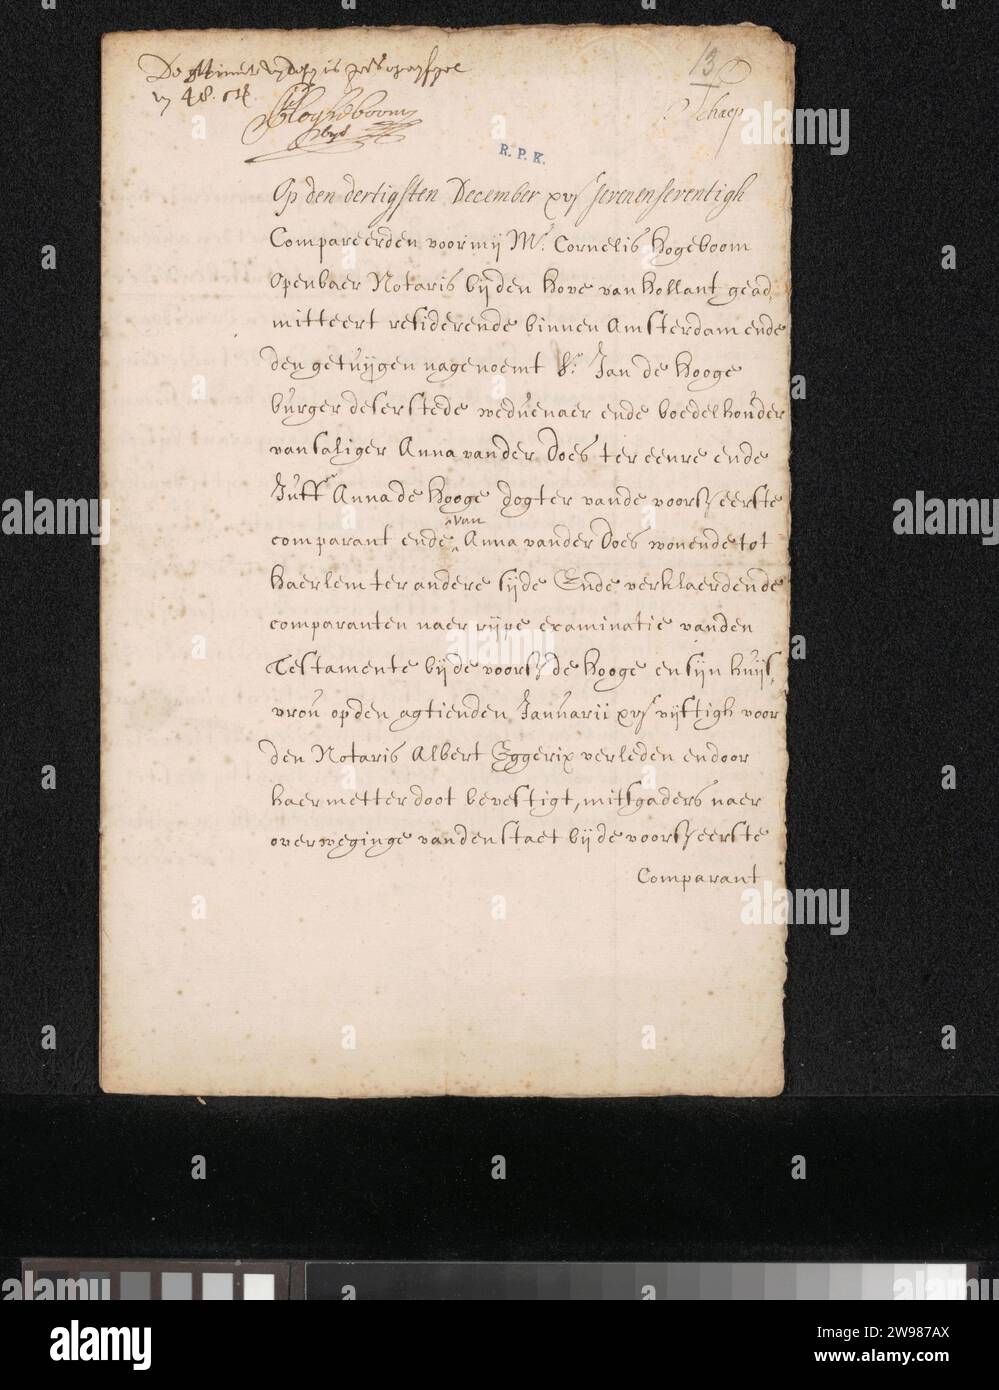 De Minut
48. st.
Hogeboom
13
Schaep
R. P. K.
Op den dertigsten December xvjc sevenenseventigh
Compareerden voor mij Mr. Cornelis Hogeboom
Openbaer Notaris bijden Hove van Hollant gead,
mitteert residerende binnen Amsterdam ende
den getuijgen nagenoemt Sr. Jan de Hooge
burger deser stede weduenaer ende boedelhouder
van saliger Anna vander Does ter eenre ende
Juffr Anna de Hooge dogter vande voorsz eerste
comparant ende van Anna vander Does wonende tot
Haerlem ter andere sijde Ende verklaerden de
comparanten naer rijpe examinatie vanden
Testamente bij de voorsz de Hooge en sijn huijs,
vrou op den agtienden Januarii xvjc vijftigh voor
den Notaris Albert Eggerix verleden en door
haer metter doot bevestigt, mitsgaders naer
overweginge vanden staet bij de voorsz eerste
Comparant
alamy
2W987AX
www.alamy.com